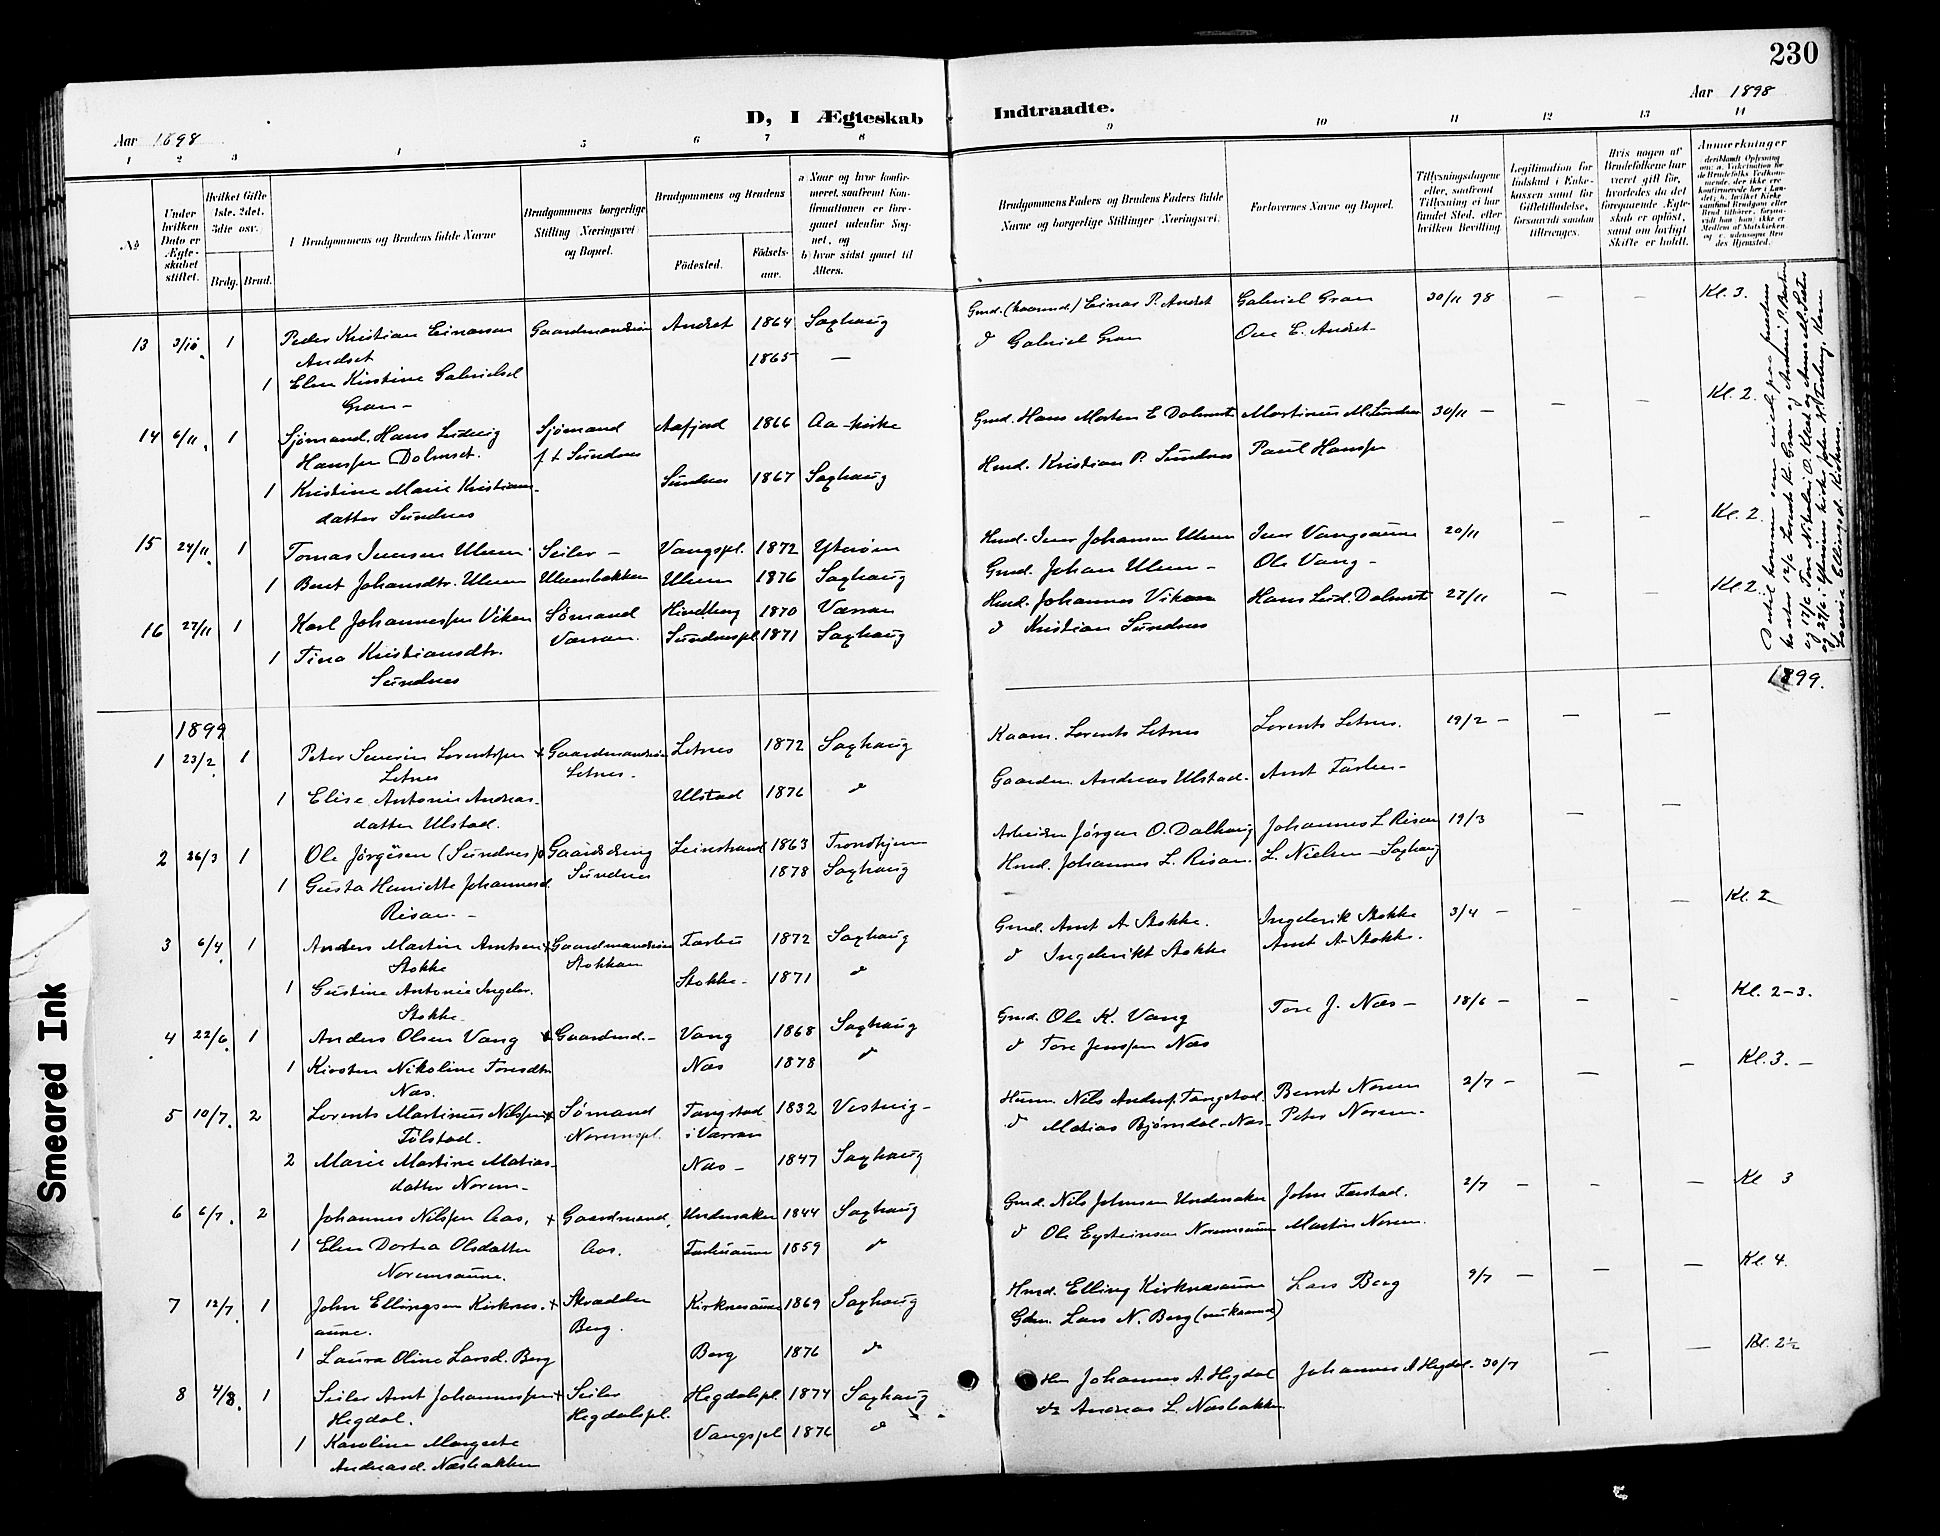 230
Aar 1898
D, I Ægteskab Indtraadte.
Aar 1898
1 2 3 4 5 6 7 8 9 10 11 12 13 14
No
Under hvilken Dato er Ægteskabet stiftet.
Hvilket Gifte 1ste, 2det, 3die osv.
Brdg. Brud.
Brudgommens og Brudens fulde Navne
Brudgommens borgerlige Stilling (Næringsvei) og Bopæl.
Brudgommens og Brudens
Födested.
Födsels-aar.
a) Naar og hvor konfirmeret, saafremt Konfirmationen er foregaaet udenfor Sognet, og
b) hvor sidst gaaet til Alters.
Brudgommens Faders og Brudens Faders fulde Navne og borgerlige Stillinger (Næringsvei).
Forlovernes Navne og Bopæl.
Tillysningsdagene eller, saafremt Tillysning ei har fundet Sted, efter hvilken Bevilling.
Legitimation for Indskud i Enkekassen samt for Giftetilladelse, forsaavidt saadan tiltrænges.
Hvis nogen af Brudefolkene har været gift før, hvorledes da det foregaaende Ægteskab er oplöst, samt om lovligt Skifte er holdt.
Anmerkninger
13 3/10. 1 Peder Kristian Einarsen Gaardmandssön Andset 1864 Saxhaug Gmd. (kaarmd.) Einar P. Andset Gabriel Gran 30/11 98 — — Kl. 3.
Andset 1865 — d Gabriel Gran Ole E. Andset
1 Elen Kirstine Gabrielsd
Gran —
14 6/11. 1 Sjömand. Hans Ludvig Sjömand Aafjord 1866 Aa-kirke Gmd. Hans Morten E Dalmset Martinus M. Sundnes 30/11 — — — Kl. 2.
Hanssen Dalmset. f. t. Sundnes
1 Kristine Marie Kristians- Sundnes 1867 Saxhaug Hmd. Kristian P. Sundnes Paul Hanssen
datter Sundnes
15 24/11. 1 Tomas Iversen Ulvem Seiler — Vangspl. 1872 Ytterøen Hmd. Iver Johansen Ulvem Iver Vangsaune 20/11 — — Kl. 2.
1 Beret Johansdtr. Ulvem Ulvembakken Ulvem 1876 Saxhaug Gmd. Johan Ulvem — Ole Vang —
16 27/11 1 Karl Johannessen Viken Sømand Hindberg 1870 Værran Hmd. Johannes Viken Hans Lud. Dalmset 27/11 — — Kl. 2.
1 Tina Kristiansdtr. Værran. Sundnespl 1871 Saxhaug d Kristian Sundnes
Sundnes
1899.
1899
1 23/2. 1 Peter Severin Lorentssen + Gaardmandssön Letnes 1872 Saxhaug Kaarm. Lorents Letnes Lorents Letnes. 19/2 — — —
Letnes Letnes.
1 Elise Antonie Andreas- Ulstad 1876 d Gaardm. Andreas Ulstad. Arnt Farbu —
datter Ulstad.
2 26/3 1 Ole Jørgesen (Sundnes) Gaardsdreng Leinstrand 1863 Trondhjem Arbeider Jørgen O. Dalhaug Johannes L Risan 19/3 — —
1 Gusta Henriette Johannesd. Sundnes 1878 Saxhaug Hmd. Johannes L. Risan. L. Nielsen — Saxhaug
Risan. —
3 6/4. 1 Anders Martin Arntsen + Gaardmandssön Farbu 1872 Saxhaug Gmd. Arnt A Stokke. Ingebrik Stokke 3/4 — — — Kl. 2
Stokke Stokkan
1 Gustine Antonie Ingebr. Stokke — 1871 d d Ingebrikt Stokke Arnt A Stokke.
Stokke.
4 22/6. 1 Anders Olsen Vang + Gaardmd. — Vang 1868 Saxhaug Gmd. Ole K. Vang Tore J. Næs — 18/6 — — — Kl. 2-3.
1 Kirsten Nikoline Toresdtr Næs 1878 d d Tore Jenssen Næs
Næs.
5 10/7. 2 Lorents Martinus Nilssen + Sømand Tangstad 1832 Vestvig — Husm. Nils Anders. Tangstad. Bernt Norem 2/7 — — — Kl. 3. —
Tilstad. Noremspl. i Værran
2 Marie Martine Matias- Næs — 1847 Saxhaug d Matias Bjørndal — Næs — Peter Norem.
datter Norem —
6 6/7. 2 Johannes Nilssen Aas, + Gaardmand, Undersaker 1844 Saxhaug Gmd. Nils Johnsen Undersaker John Farstad. 2/7 — — — Kl 3
1 Elen Dortea Olsdatter Aas. Farbuaune 1859 d d Ole Eysteinsen Noremsaune Martin Norem.
Noremsaune.
7 12/7. 1 John Ellingsen Kirknes- + Skrædder Kirknesaune 1869 Saxhaug Hmd. Elling Kirknesaune Lars Berg 9/7 — — — Kl 4.
aune. Berg.
1 Laura Oline Larsd. Berg Berg 1876 d Gdm. Lars N. Berg (nu kaarmd)
8 4/8. 1 Seiler Arnt Johannessen + Seiler Hegdalspl. 1874 Saxhaug Hm Johannes A. Hegdal Johannes A Hegdal. 30/7 — — Kl. 2½
Hegdal. Hegdalspl.
1 Karoline Margrete Vangspl 1876 d do Andreas L. Næsbakken
Andreasd. Næsbakken
Smeared Ink